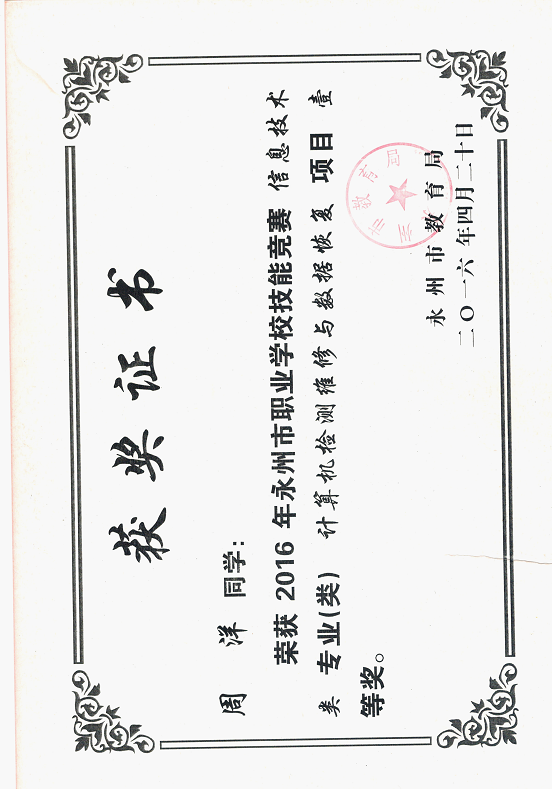 获奖证书
周洋 同学：
荣获 2016 年永州市职业学校技能竞赛 信息技术
类 专业(类) 计算机检测维修与数据恢复 项目 壹
等奖。
永州市教育局
二〇一六年四月二十日
州市教育局